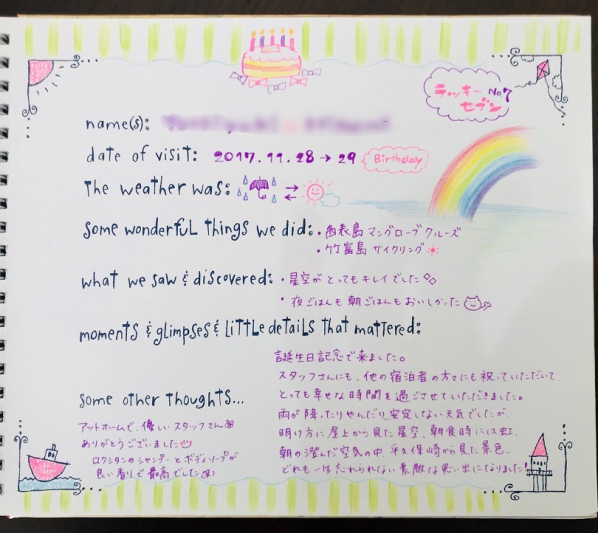 ラッキーNo7
セブン
name(s):
date of visit: 2017.11.28→29 Birthday
the weather was:
some wonderful things we did: ・西表島マングローブクルーズ
・竹富島サイクリング
what we saw & discovered: ・星空がとってもキレイでした
・夜ごはんも朝ごはんもおいしかった
moments & glimpses & little details that mattered:
誕生日記念で来ました。
スタッフさんにも、他の宿泊者の方々にも祝っていただいて
とっても幸せな時間を過ごさせていただきました。
雨が降ったりやんだり、安定しない天気でしたが、
明け方に屋上から見た星空、朝食時には虹、
朝の澄んだ空気の中、平久保崎から見た景色、
どれも一生忘れられない素敵な思い出になりました!
some other thoughts...
アットホームで、優しいスタッフさん
ありがとうございました
ロクシタンのシャンプーとボディソープが
良い香りで最高でした